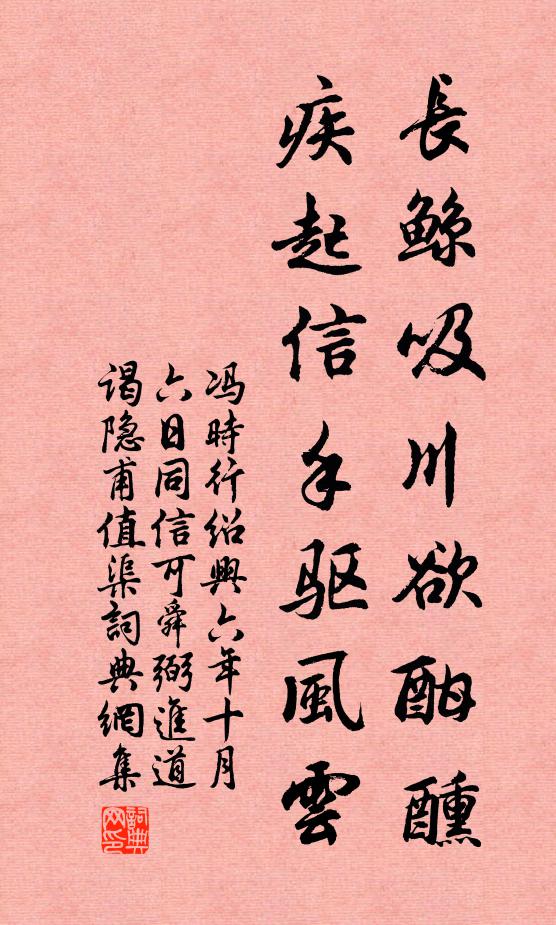 長鯨吸川欲酣醺
疾起信手驱風雲
冯時行紹興六年十月
六日同信可舜弼進道
谒隐甫值渠詞典網集
詞典网印